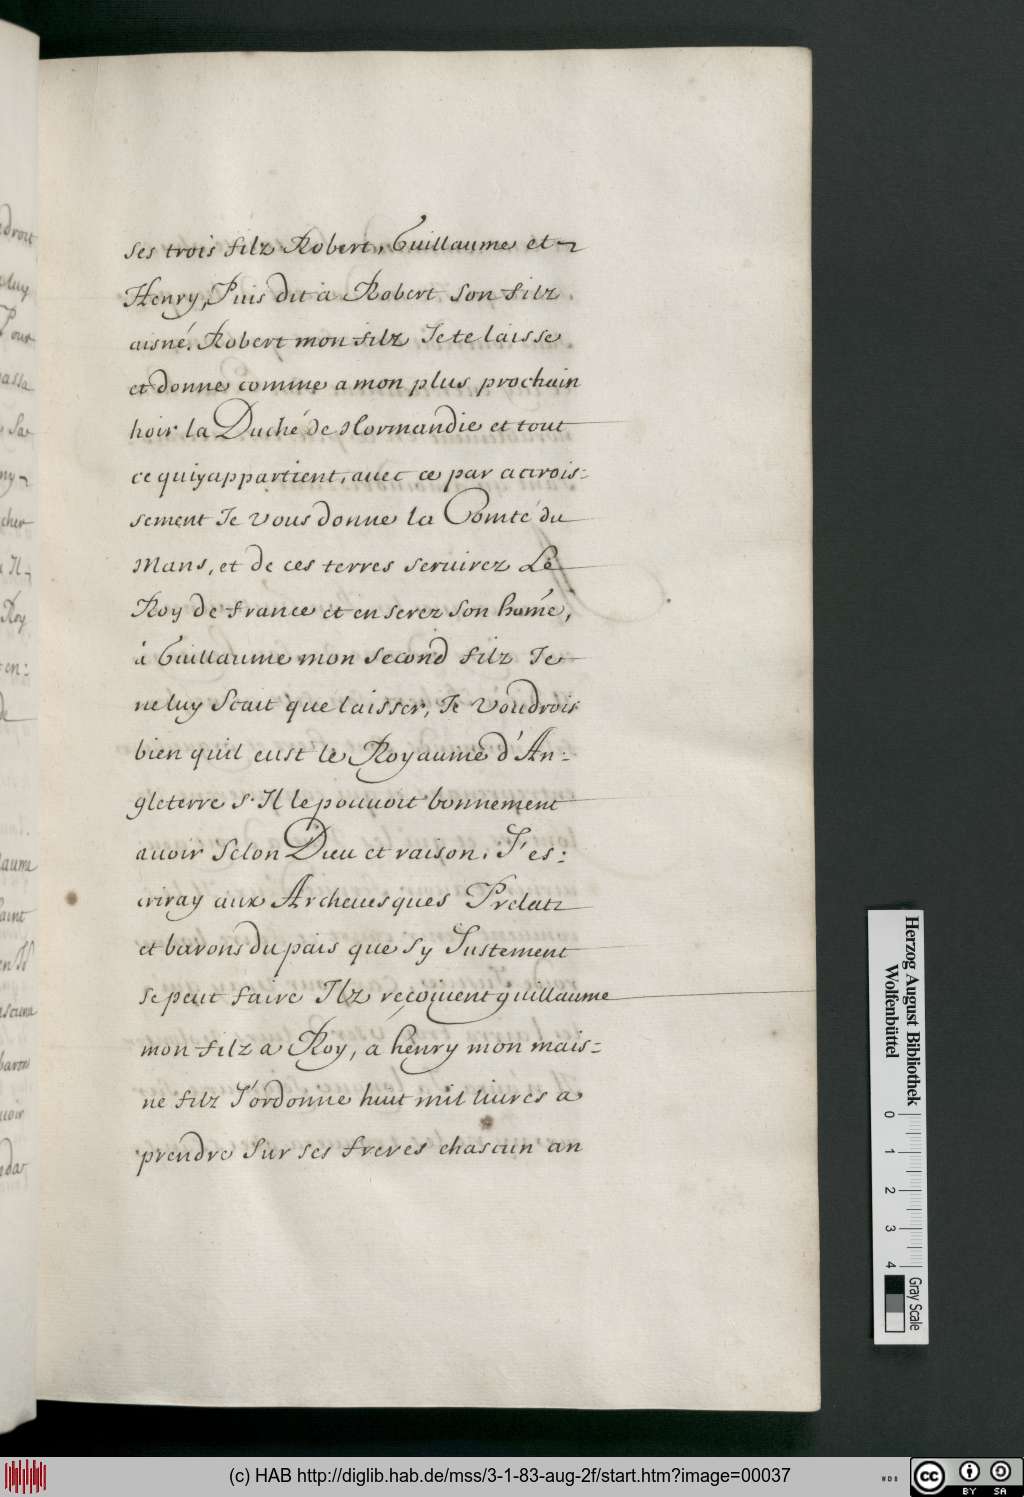 ses trois filz Robert, Guillaume et
Henry, Puis dit à Robert son filz
aisné. Robert mon filz Je te laisse
et donne comme a mon plus prochain
hoir la Duché de Normandie et tout
ce qui y appartient, auec ce par acrois=
sement Je vous donne la Comté du
Mans, et de ces terres seruirez Le
Roy de france et en serez son hom̃e,
à Guillaume mon second filz Je
ne luy Scait que laisser, Je voudrois
bien quil eust le Royaume d'An=
gleterre s'Il le pouuoit bonnement
auoir selon Dieu et raison. J'es=
criray aux Archeuesques Prelatz
et barons du païs que sy Justement
se peut faire Ilz reçoiuent guillaume
mon filz a Roy, a henry mon mais=
né filz J'ordonne huit mil liures a
prendre sur ses freres chascun an
droit
luy
Pour
passa
Sa
cher
Il
Roy
en=
de
laume
saint
en
baron
uoir
Herzog August Bibliothek
Wolfenbüttel
0 1 2 3 4
Gray Scale
(c) HAB http://diglib.hab.de/mss/3-1-83-aug-2f/start.htm?image=00037
WDB
cc BY SA